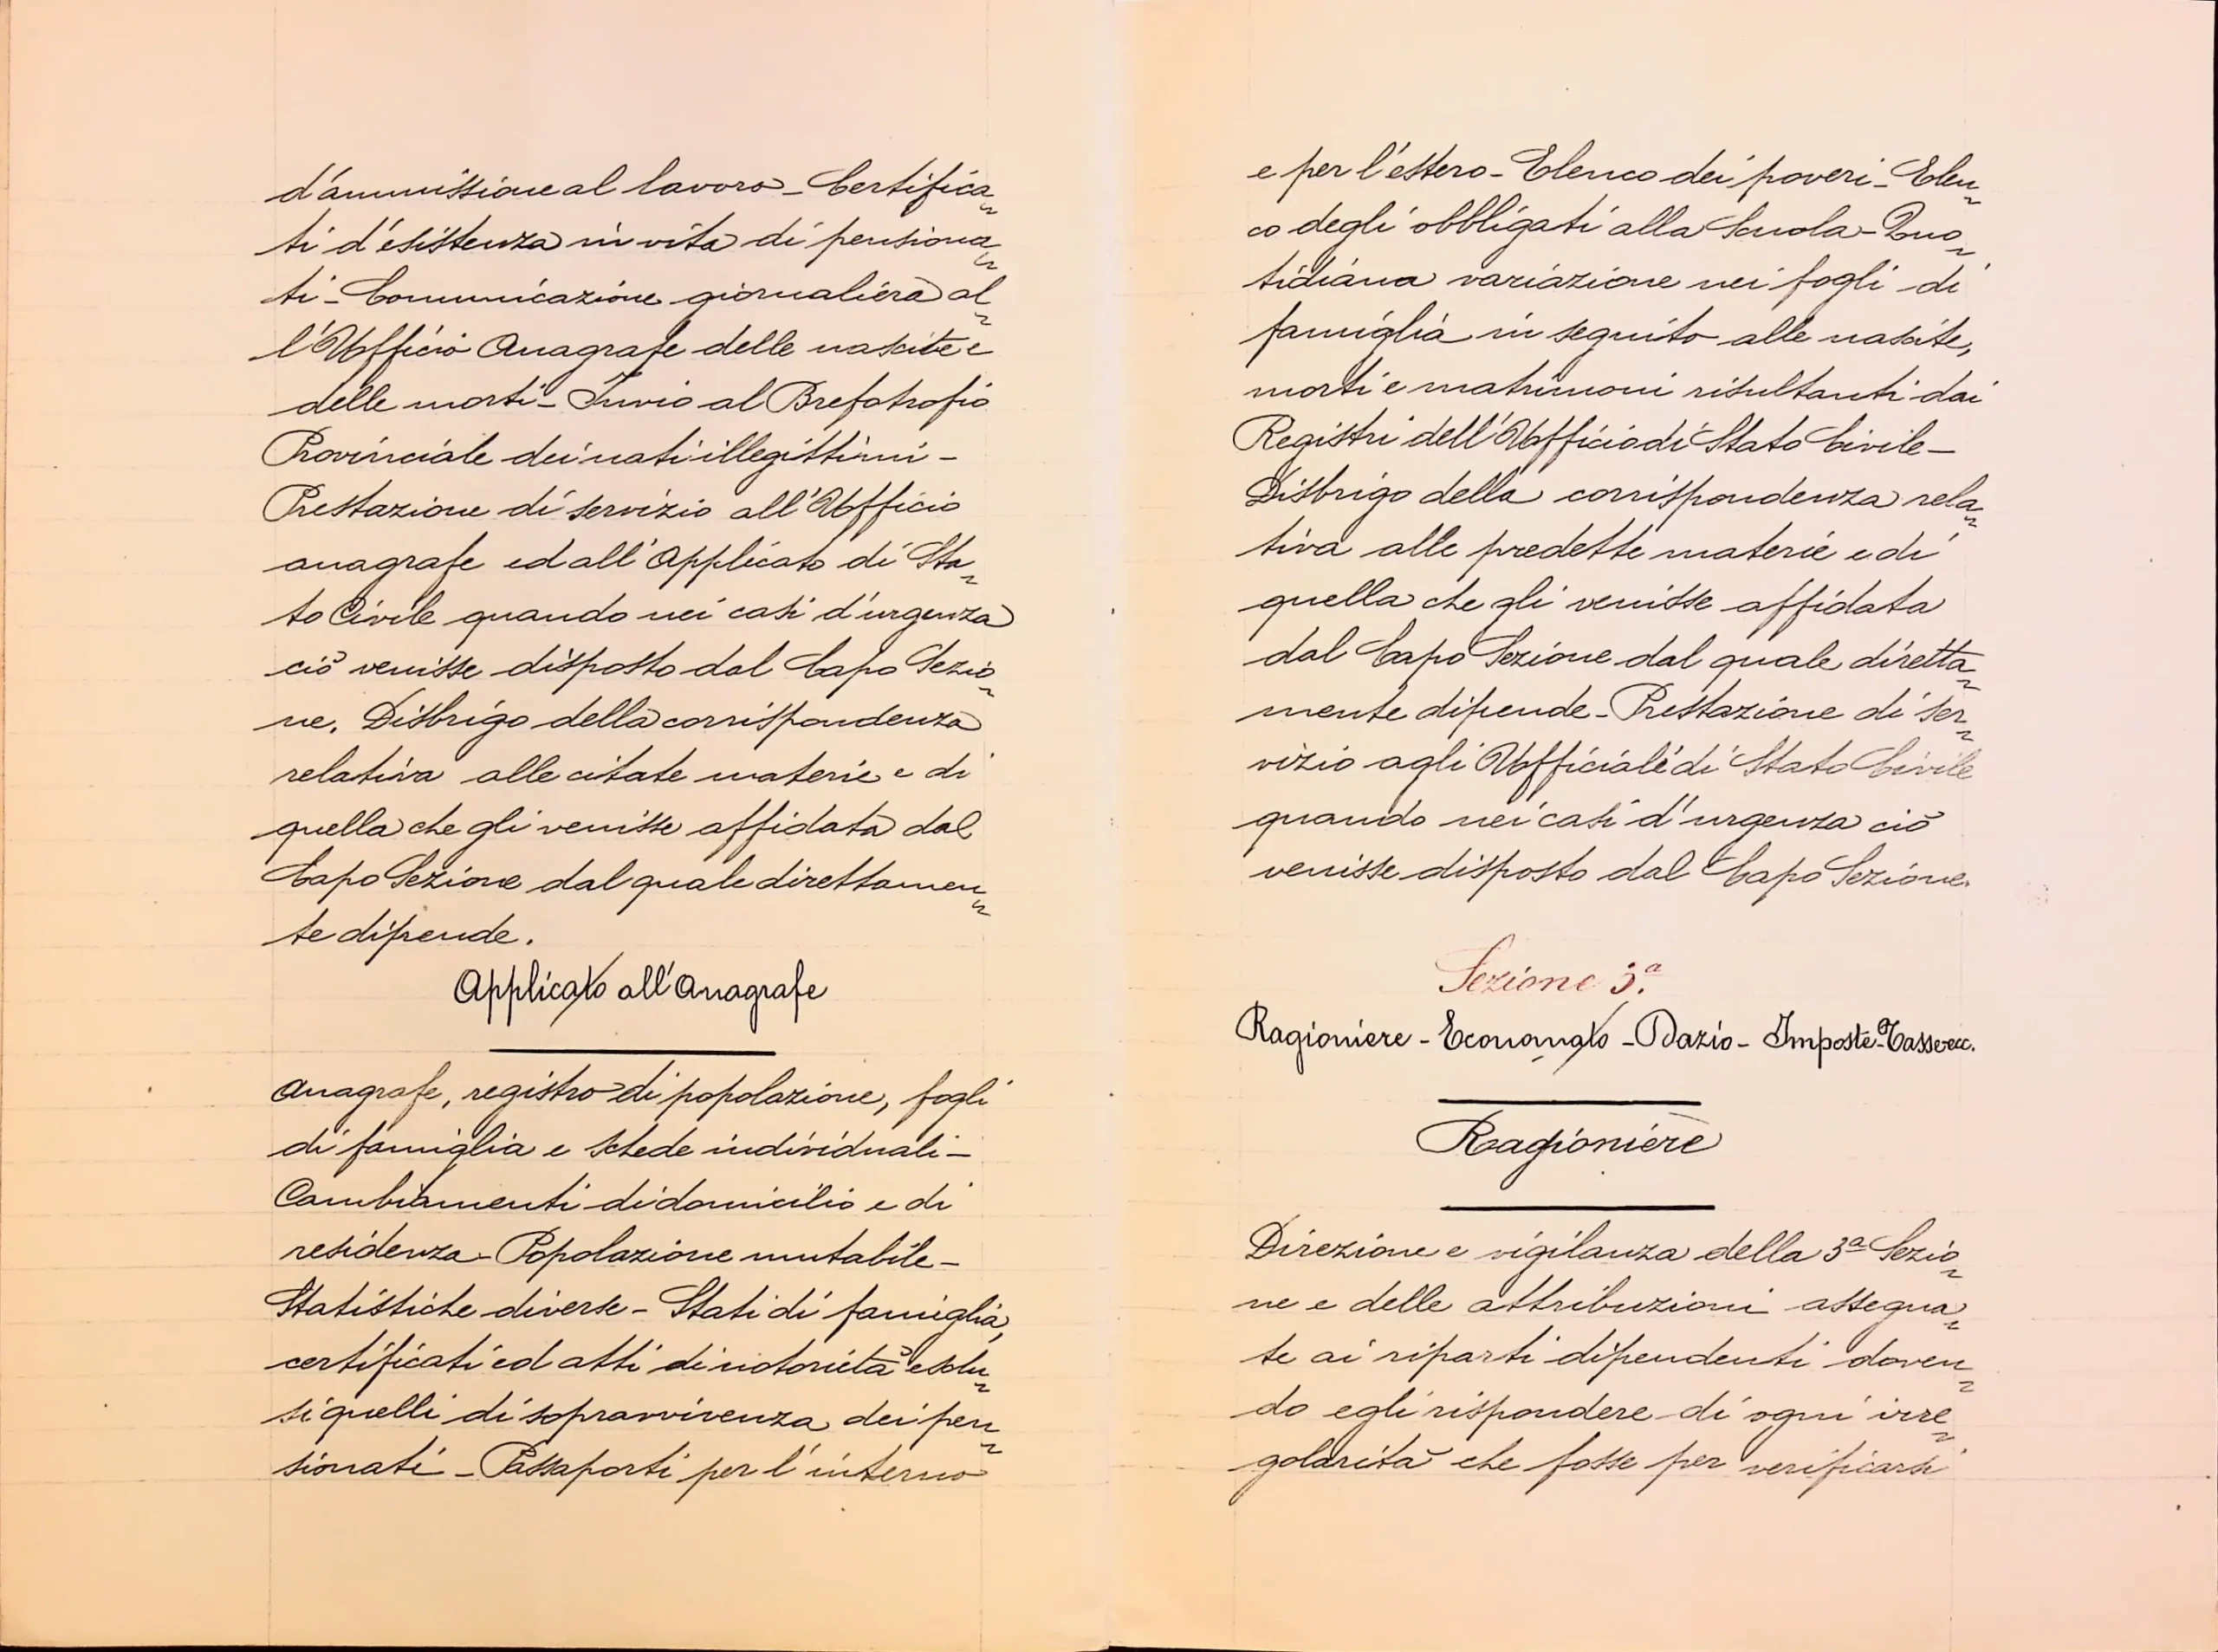 d'ammissione al lavoro - Certifica
ti d'esistenza in vita di pensiona
ti - Comunicazione giornaliera al
l'Ufficio Anagrafe delle nascite e
delle morti - Invio al Brefotrofio
Provinciale dei nati illegittimi -
Prestazione di servizio all'Ufficio
anagrafe ed all'Applicato di Sta
to Civile quando nei casi d'urgenza
ciò venisse disposto dal Capo Sezio
ne. Disbrigo della corrispondenza
relativa alle citate materie e di
quella che gli venisse affidata dal
Capo Sezione dal quale direttamen
te dipende.
Applicato all'Anagrafe
Anagrafe, registro di popolazione, fogli
di famiglia e schede individuali -
Cambiamenti di domicilio e di
residenza - Popolazione mutabile -
Statistiche diverse - Stati di famiglia,
certificati ed atti di notorietà esclu
si quelli di sopravvivenza dei pen
sionati - Passaporti per l'interno
e per l'estero - Elenco dei poveri - Elen
co degli obbligati alla Scuola - Quo
tidiana variazione nei fogli di
famiglia in seguito alle nascite,
morti e matrimoni risultanti dai
Registri dell'Ufficio di Stato Civile -
Disbrigo della corrispondenza rela
tiva alle predette materie e di
quella che gli venisse affidata
dal Capo Sezione dal quale diretta
mente dipende - Prestazione di ser
vizio agli Ufficiali di Stato Civile
quando nei casi d'urgenza ciò
venisse disposto dal Capo Sezione.
Sezione 3.a
Ragioniere - Economato - Dazio - Imposte - Tasse ecc.
Ragioniere
Direzione e vigilanza della 3a Sezio
ne e delle attribuzioni assegna
te ai riparti dipendenti doven
do egli rispondere di ogni irre
golarità che fosse per verificarsi